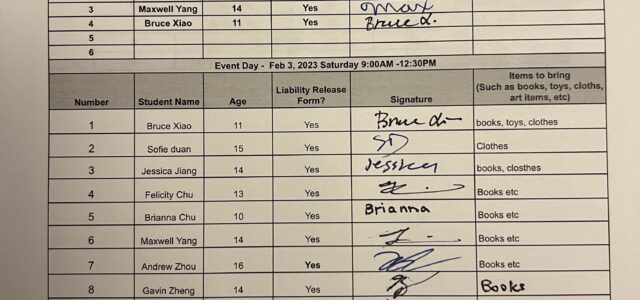 3 Maxwell Yang 14 Yes max
4 Bruce Xiao 11 Yes Bruce
5
6
Event Day - Feb 3, 2023 Saturday 9:00AM -12:30PM
Number Student Name Age Liability Release Form? Signature Items to bring (Such as books, toys, cloths, art items, etc)
1 Bruce Xiao 11 Yes Bruce books, toys, clothes
2 Sofie duan 15 Yes SD Clothes
3 Jessica Jiang 14 Yes Jessica books, closthes
4 Felicity Chu 13 Yes Books etc
5 Brianna Chu 10 Yes Brianna Books etc
6 Maxwell Yang 14 Yes Books etc
7 Andrew Zhou 16 Yes Books etc
8 Gavin Zheng 14 Yes Books